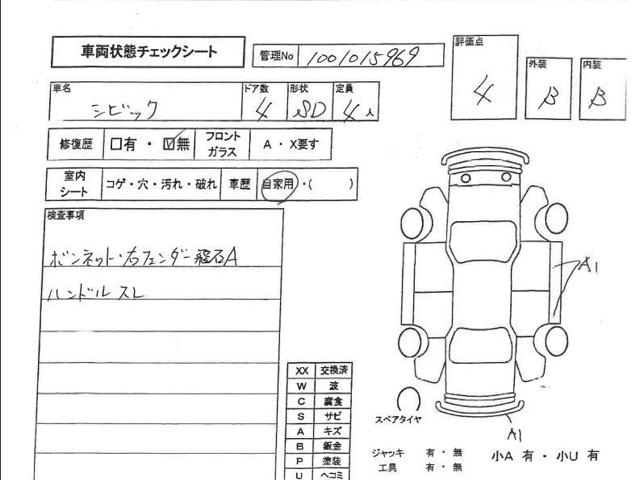 車両状態チェックシート
管理No 1001015969
評価点 4
外装 B
内装 B
車名 シビック
ドア数 4
形状 SD
定員 4人
修復歴 □有・☑無
フロントガラス A・X要す
室内シート コゲ・穴・汚れ・破れ
車歴 自家用・( )
検査事項
ボンネット・右フェンダー飛石A
ハンドルスレ
A1
XX 交換済
W 波
C 腐食
S サビ
A キズ
B 鈑金
P 塗装
U ヘコミ
スペアタイヤ
A1
ジャッキ 有・無
工具 有・無
小A 有・小U 有